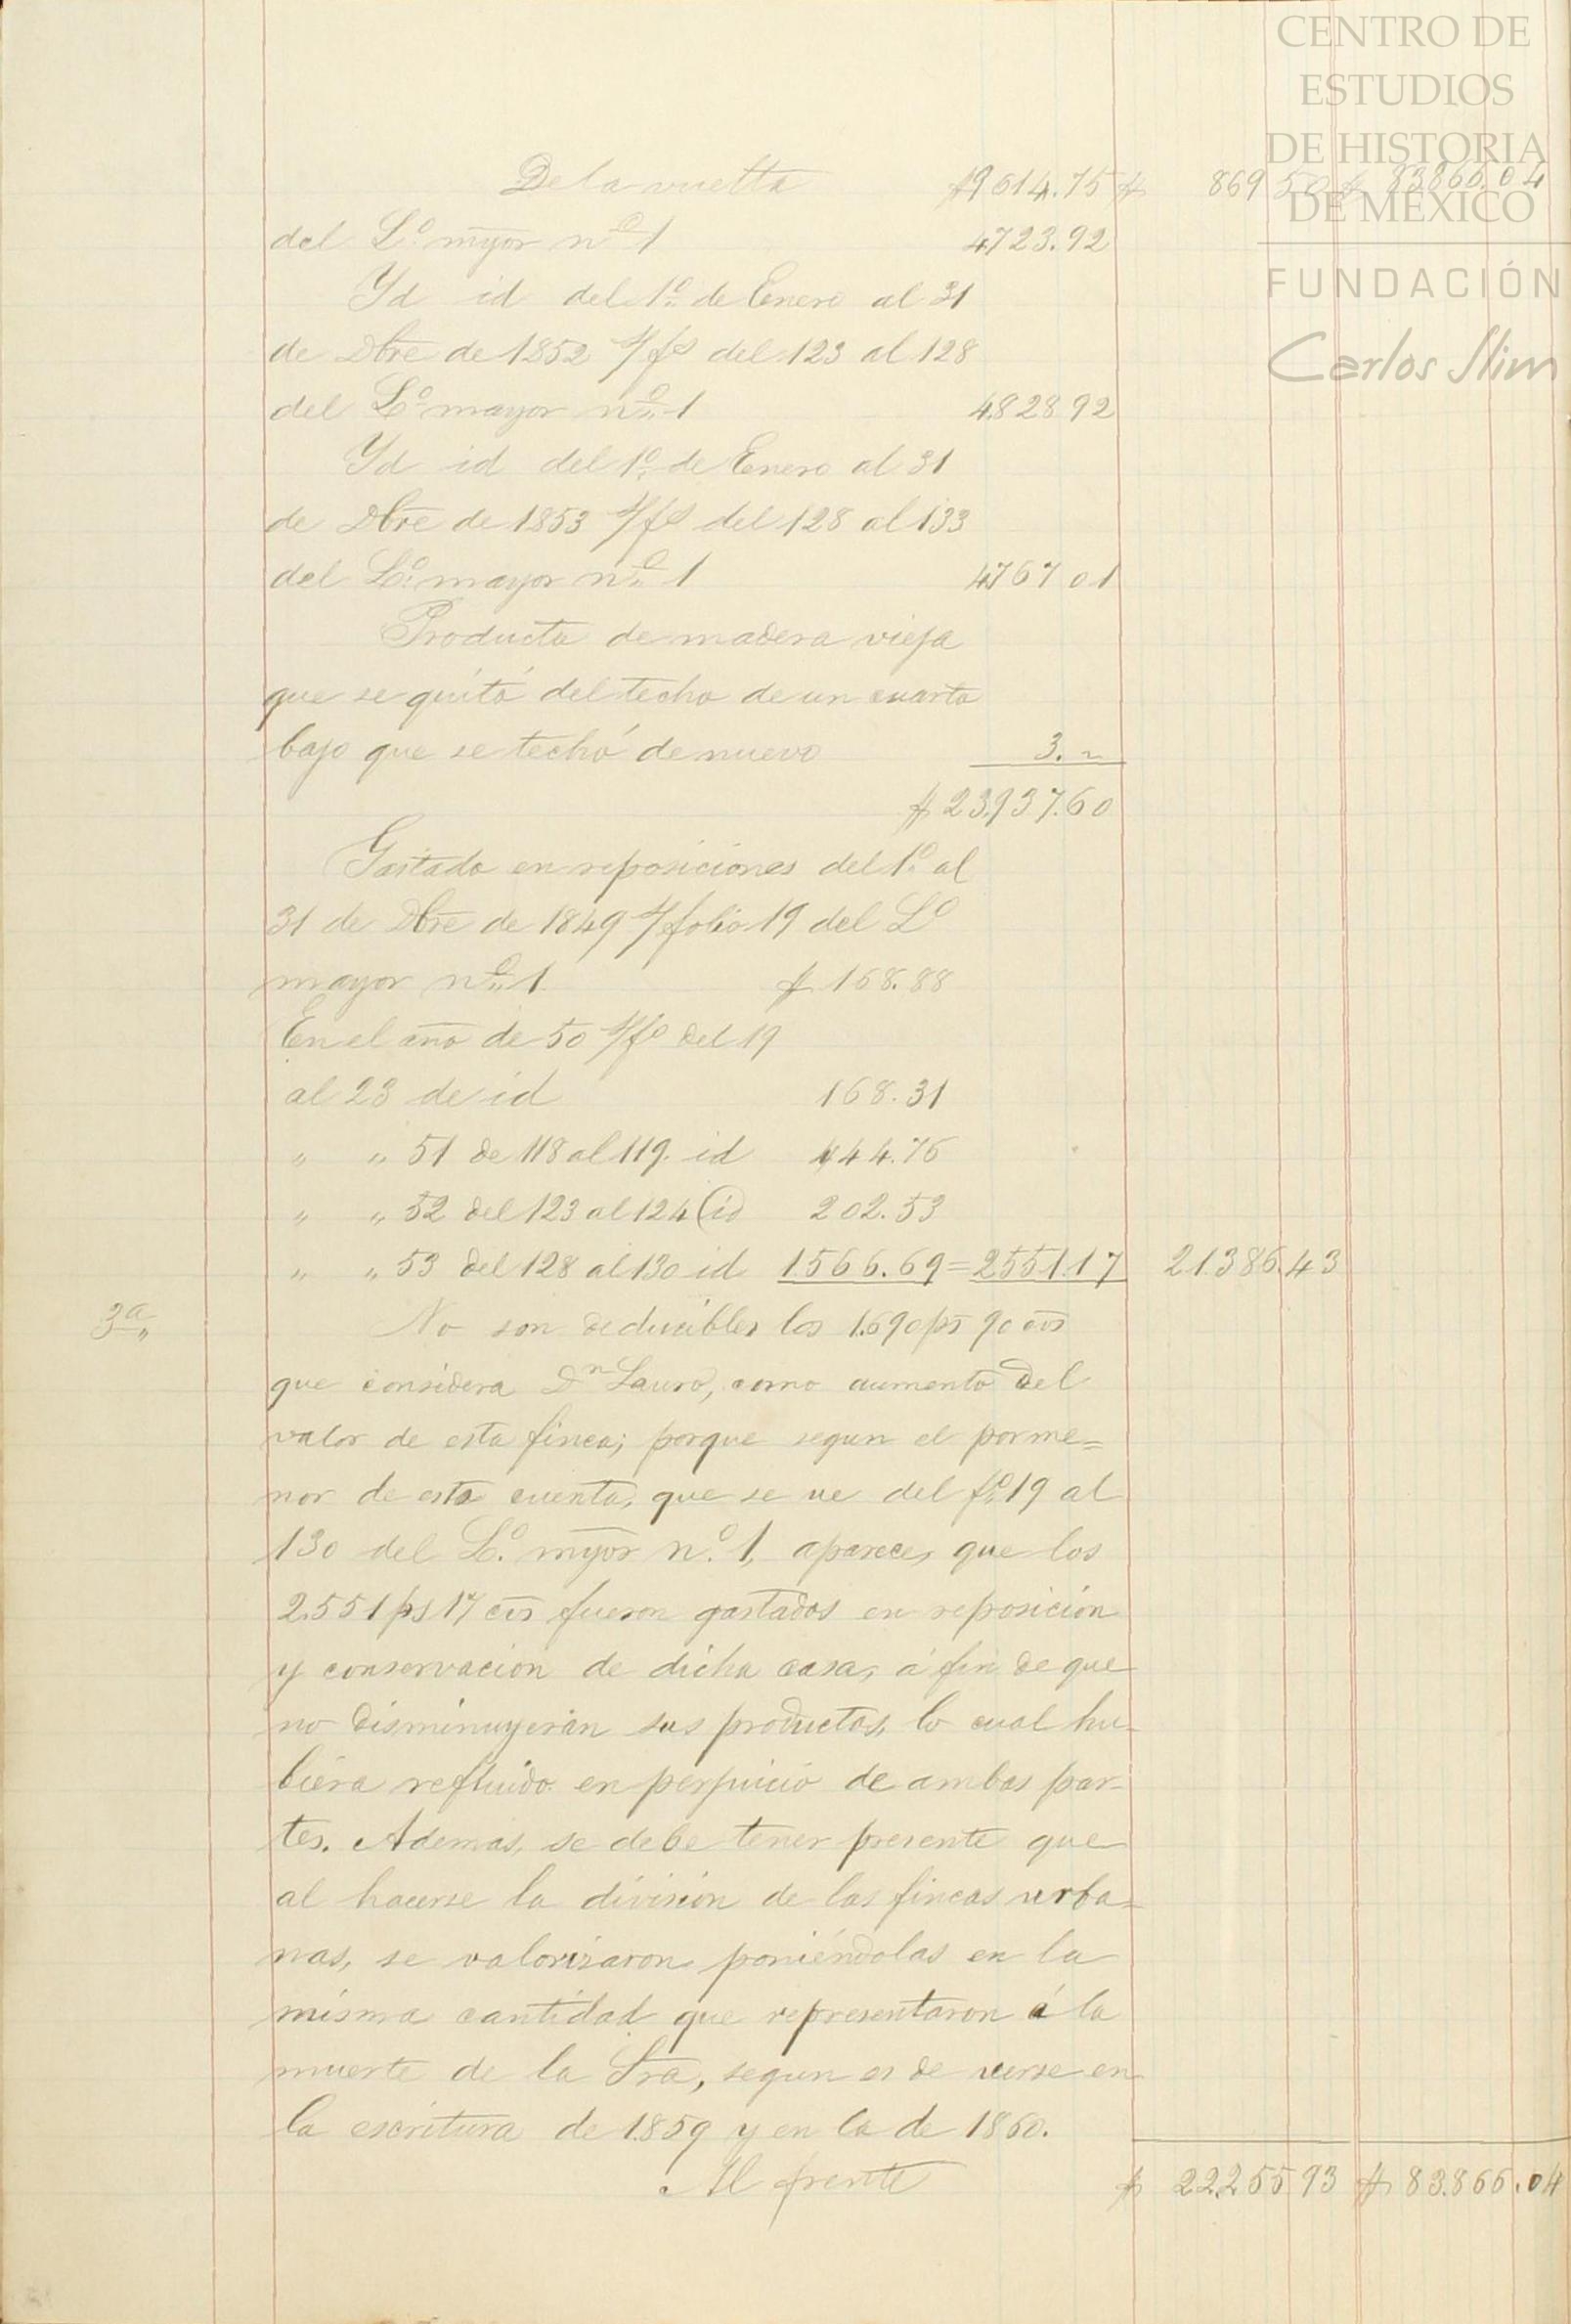 CENTRO DE
ESTUDIOS
DE HISTORIA
DE MÉXICO
FUNDACIÓN
Carlos Slim
De la vuelta $9614.75 $ 869 50 $ 83866.04
del L.º myor nº 1 4723.92
Yd id del 1º de Enero al 31
de Dbre de 1852 s/fs del 123 al 128
del Lº mayor nº 1 4828 92
Yd id del 1º de Enero al 31
de Dbre de 1853 s/fs del 128 al 133
del Lº mayor nº 1 4767 01
Producto de madera vieja
que se quitó del techo de un cuarto
bajo que se techó de nuevo 3. "
$ 23.937.60
Gastado en reposiciones del 1º al
31 de Dbre de 1849 s/folio 19 del Lº
mayor nº 1 $ 168.88
En el año de 50 s/fº del 19
al 23 de id 168.31
" " 51 de 118 al 119. id 444.76
" " 52 del 123 al 124 id 202.53
" " 53 del 128 al 130 id 1.566.69 = 2551.17 21.386.43
3ª No son deducibles los 1.690 ps 90 cvs
que considera Dn Lauro, como aumento del
valor de esta finca; porque segun el porme=
nor de esta cuenta, que se ve del fº 19 al
130 del L.º myor n.º 1, aparece, que los
2.551 ps 17 cvs fueron gastados en reposición
y conservacion de dicha casa, á fin de que
no disminuyeran sus productos, lo cual hu-
biera refluido en perjuicio de ambas par-
tes. Ademas, se debe tener presente que
al hacerse la división de las fincas urba-
nas, se valorizaron poniéndolas en la
misma cantidad que representaron á la
muerte de la Sra, segun es de verse en
la escritura de 1859 y en la de 1860.
Al frente $ 22.255 93 $ 83.866.04